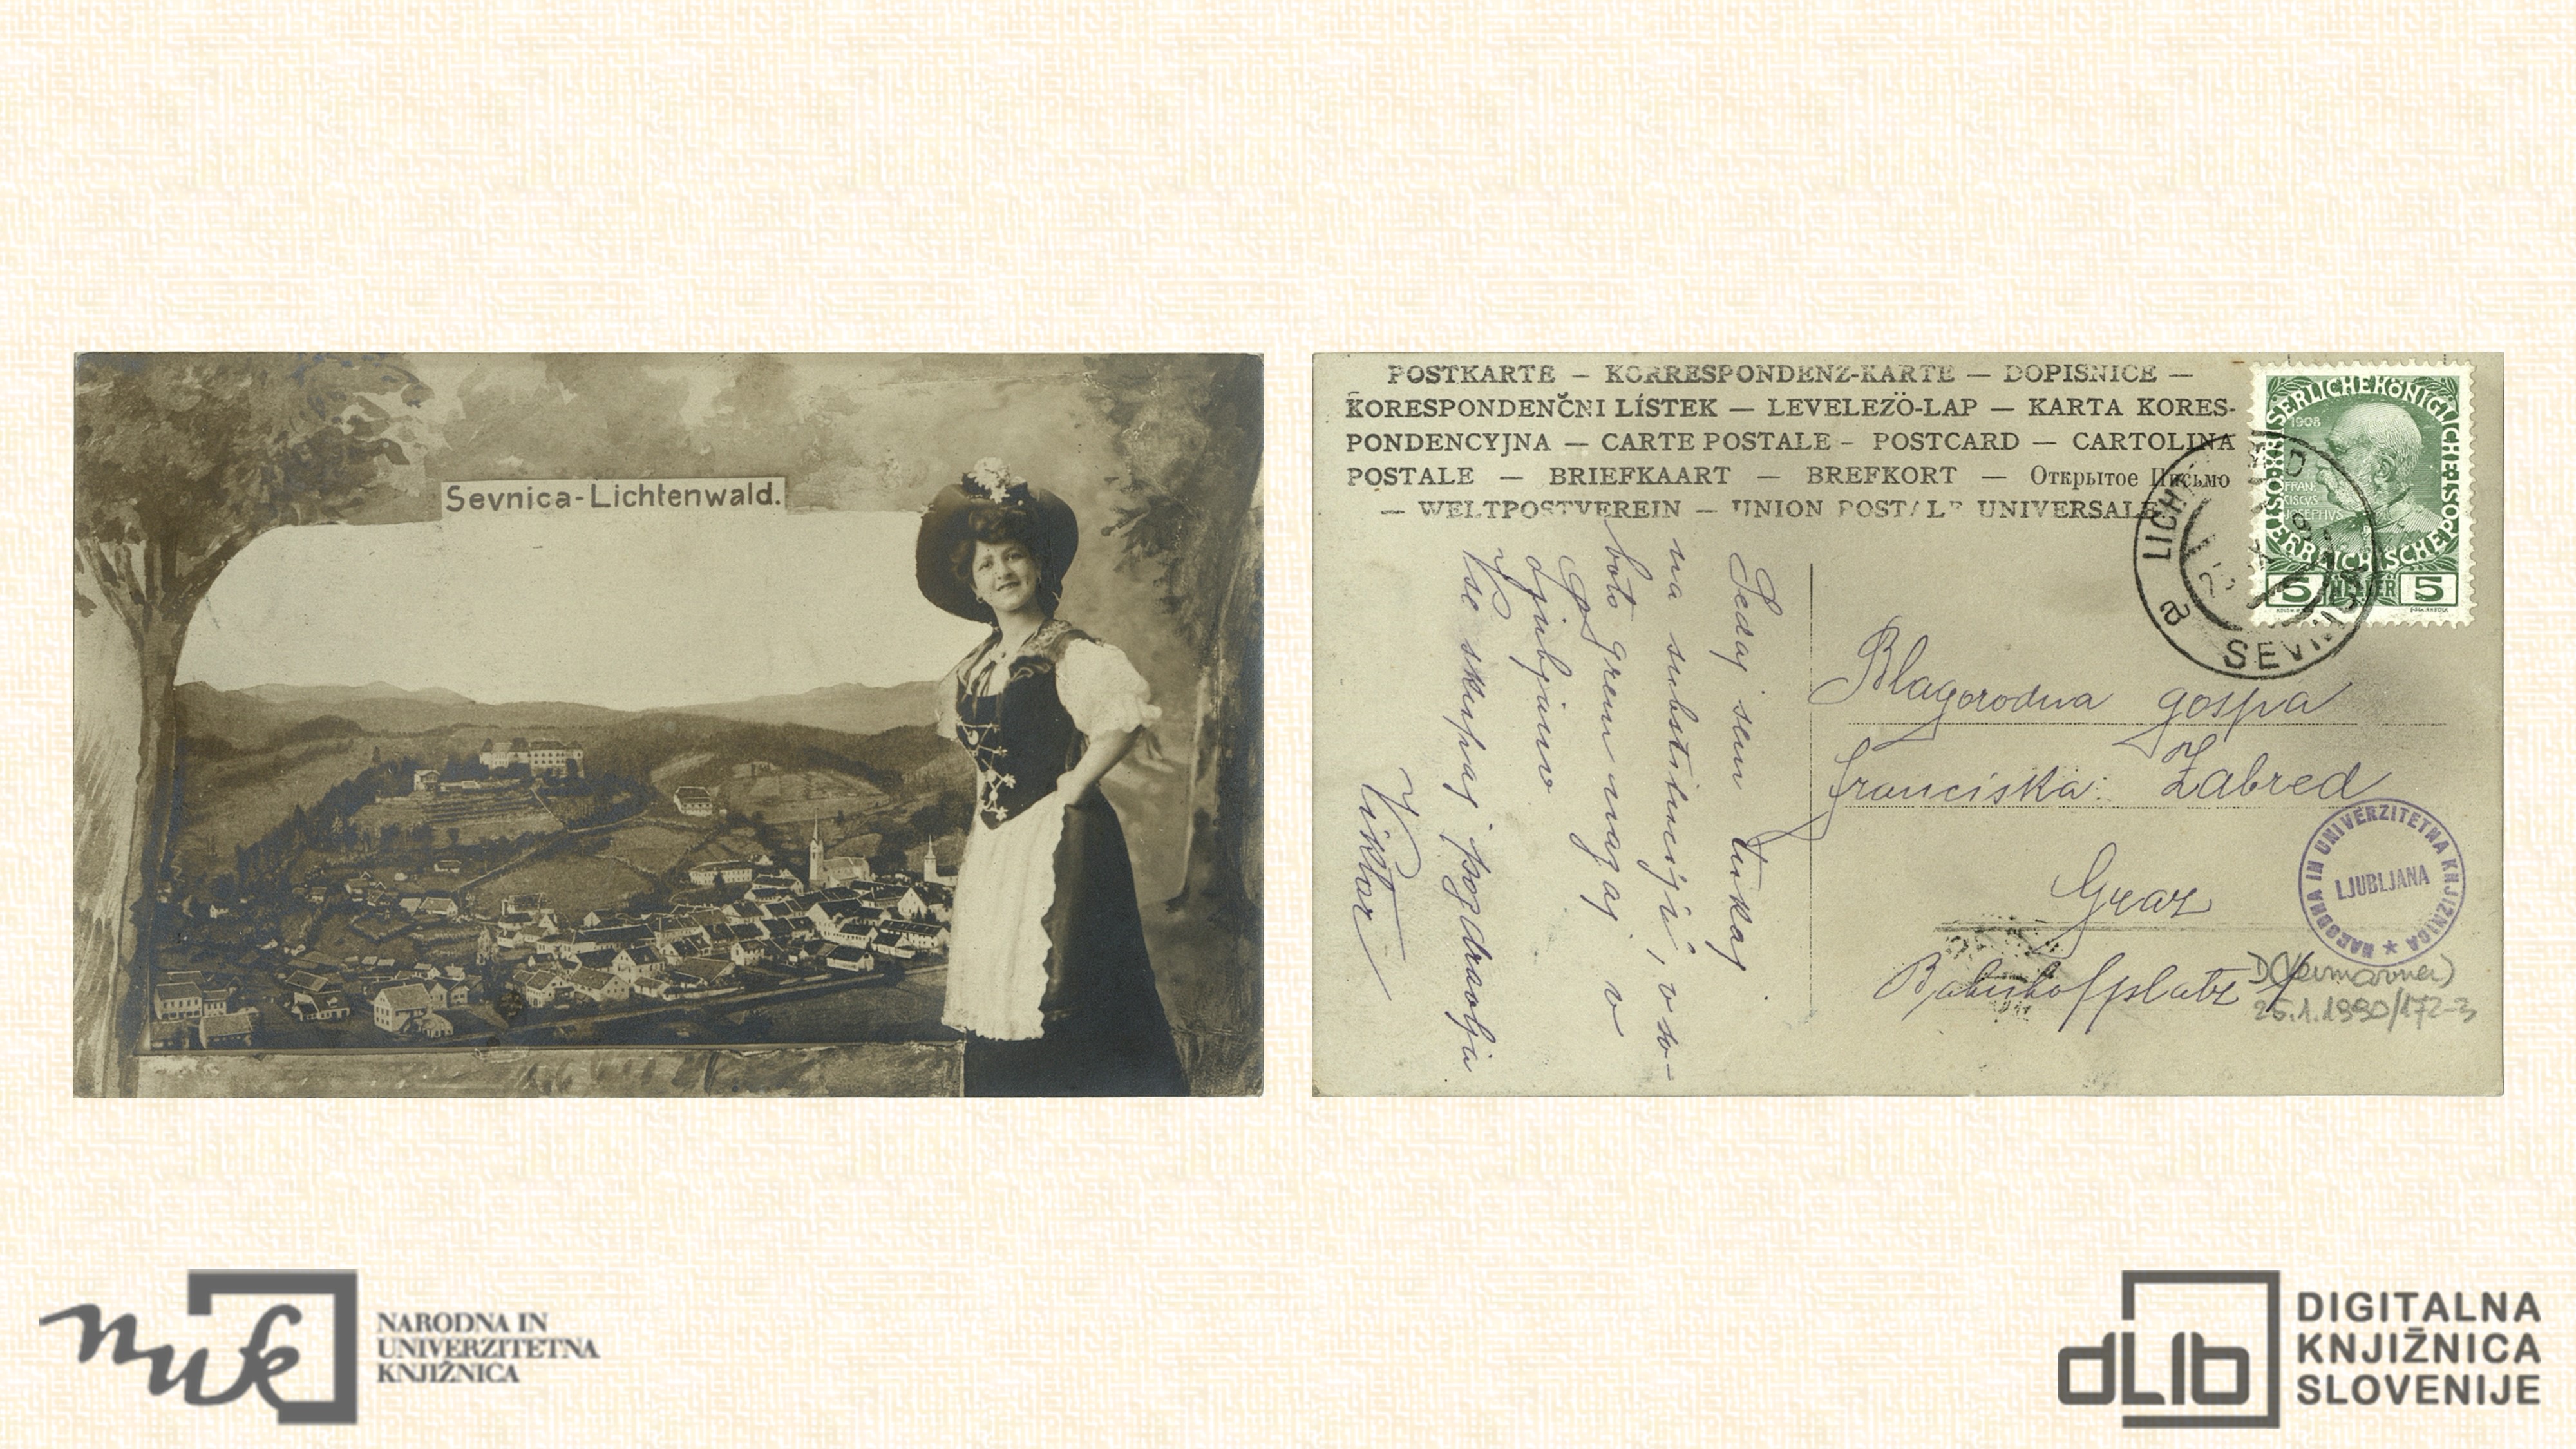 Sevnica-Lichtenwald.
POSTKARTE – KORRESPONDENZ-KARTE – DOPISNICE –
KORESPONDENČNI LÍSTEK – LEVELEZÖ-LAP – KARTA KORES-
PONDENCYJNA – CARTE POSTALE – POSTCARD – CARTOLINA
POSTALE – BRIEFKAART – BREFKORT – Открытое Письмо
– WELTPOSTVEREIN – UNION POSTALE UNIVERSALE
KAISERLICHE KÖNIGLICHE
ÖSTERREICHISCHE POST
1908
FRAN
CISCVS
JOSEPHVS
5 HELLER 5
LICHT
SEVNI
a
Sedaj sem tukaj
na substituciji, v so-
boto grem nazaj v
Ljubljano
Vse skupaj pozdravlja
Viktor
Blagorodna gospa
Franciska Zabred
Graz
Bahnhofplatz
NARODNA IN UNIVERZITETNA KNJIŽNICA ★
LJUBLJANA
25.1.1990/172-3
nuk
NARODNA IN
UNIVERZITETNA
KNJIŽNICA
dLib
DIGITALNA
KNJIŽNICA
SLOVENIJE